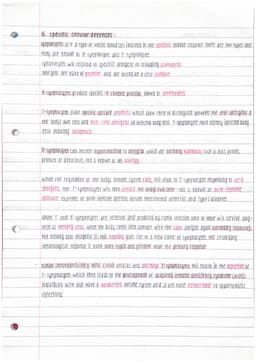 6. specific cellular defences :
lymphocytes are a type of white blood cell involved in the specific immune response. there are two types and
they are known as B lymphocytes and T-lymphocytes.
lymphocytes will respond to specific antigens on invading pathogens.
antigens are made of protein and are located on a cell surface
B-lymphocytes produce specific Y-shaped proteins known as antibodies.
T-lymphocytes have specific surface proteins which allow them to distinguish between the self-antigens of
the body's own cells and non-self antigens on infected body cells. T-lymphocytes then destroy infected body
cells inducing apoptosis.
B-lymphocytes can become hypersensitive to antigens which are normally harmless such as bee stings,
peanuts or penicillin, this is known as an allergy.
when the regulation of the body's immune system fails, this leads to T-lymphocytes responding to self
antigens. The T-lymphocytes will then attack the body's own cells. This is known as auto-immune
disease. examples of auto-immune disease include rheumatoid arthritis and type 1 diabetes.
when T and B lymphocytes are selected and produced by clonal selection some of them will survive long-
term as memory cells. when the body comes into contact with the same antigen again (secondary response),
the existing cells multiply rapidly and give rise to a new clone of lymphocytes. this secondary
immunological response is more rapid and greater than the primary response.
human immunodeficiency virus (HIV) attacks and destroys T-lymphocytes. this results in the depletion of
T-lymphocytes which then leads to the development of acquired immune deficiency syndrome (AIDS).
individuals with AIDS have a weakened immune system and so are more vulnerable to opportunistic
infections.